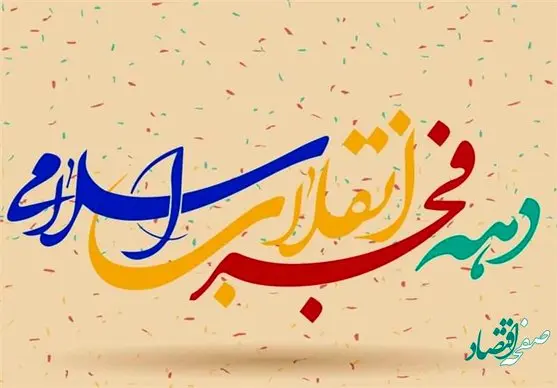 دهه فجر انقلاب اسلامی
صفحه اقتصاد